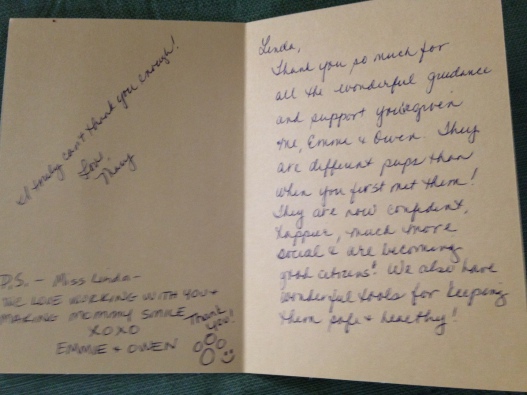 I truly can't thank you enough!
Love
P.S. - Miss Linda -
WE LOVE WORKING WITH YOU +
MAKING MOMMY SMILE
XOXO
EMMIE + OWEN
Thank
You!
Linda,
Thank you so much for
all the wonderful guidance
and support you've given
me, Emmie & Owen. They
are different pups than
when you first met them!
They are now confident,
happier, much more
social & are becoming
good citizens! We also have
wonderful tools for keeping
them safe + healthy!